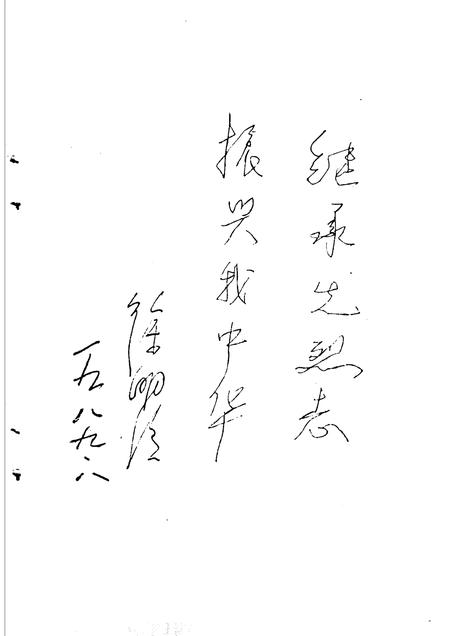 继承先烈志
振兴我中华
徐
一九八九.八